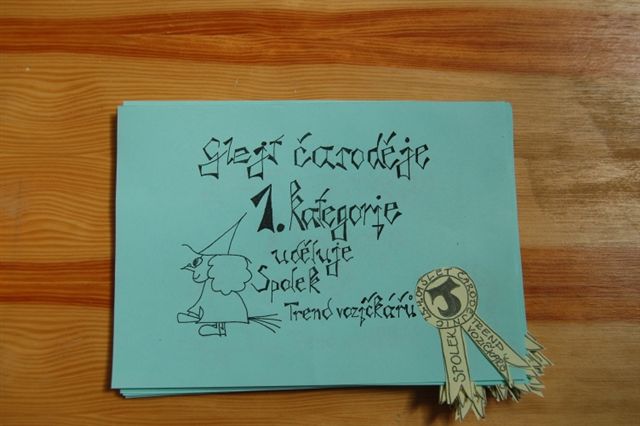 Glejt čaroděje
1. kategorie
uděluje
Spolek
Trend vozíčkářů
5
SLET ČARODĚJNIC
SPOLEK
TREND
VOZÍČKÁŘŮ